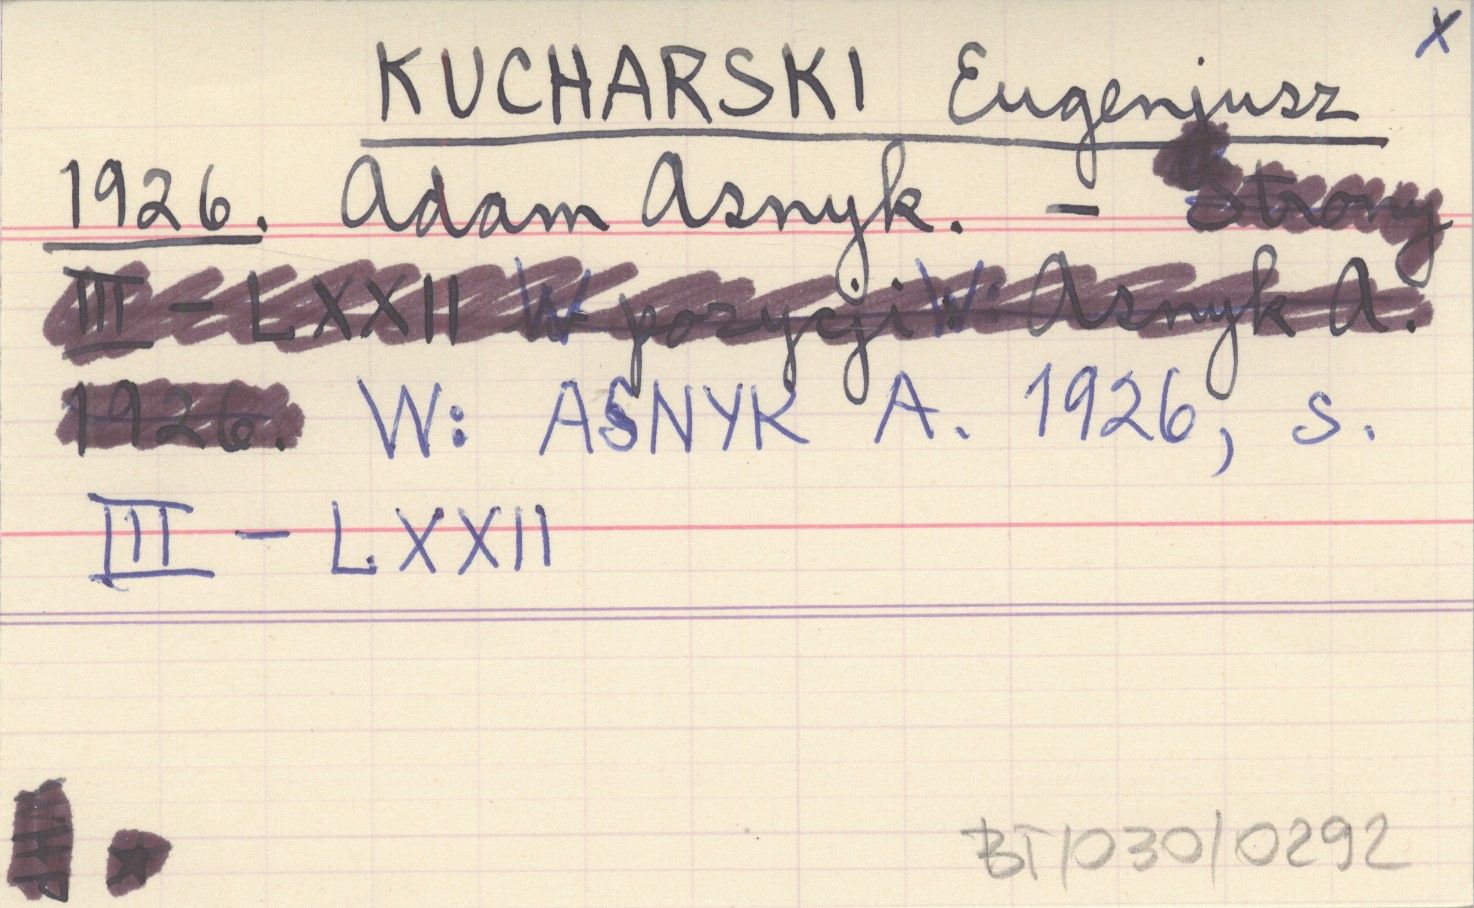 X
KUCHARSKI Eugenjusz
1926. Adam Asnyk. - Strony
III - LXXII W pozycji W: Asnyk A.
1926. W: ASNYK A. 1926, s.
III - LXXII
BT/030/0292